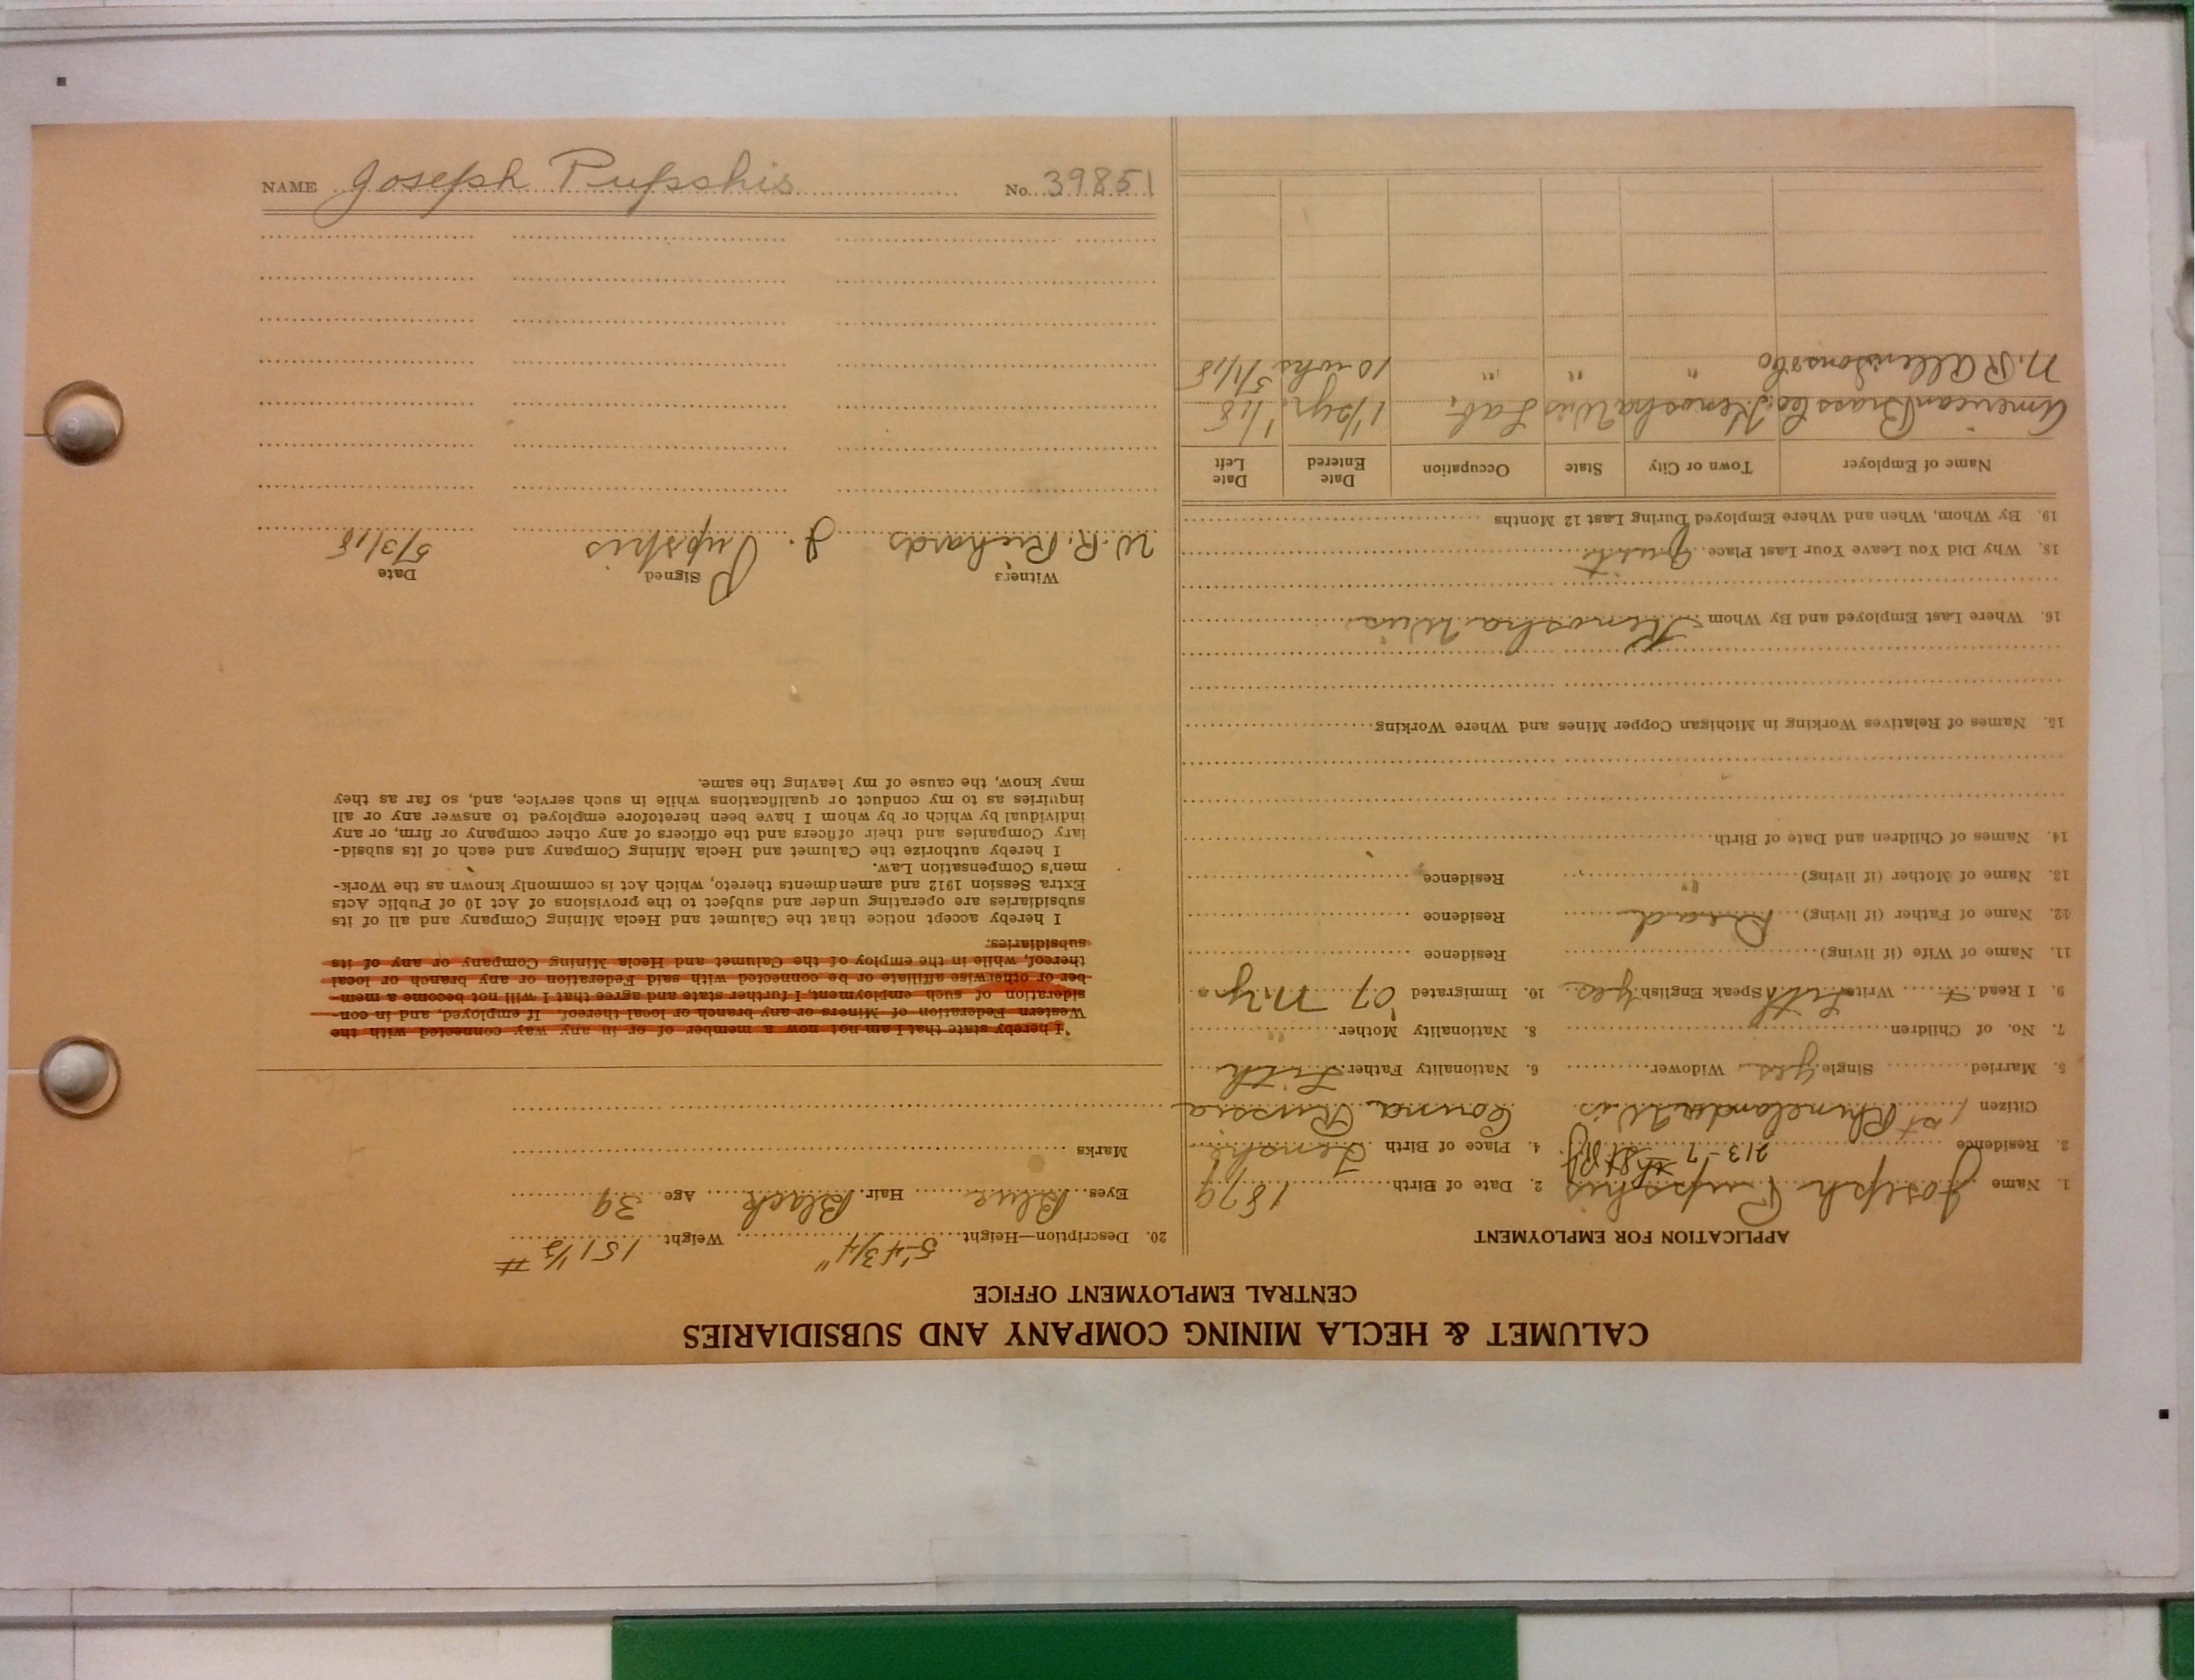 NAME Joseph Pupshis No. 39851
CALUMET & HECLA MINING COMPANY AND SUBSIDIARIES
CENTRAL EMPLOYMENT OFFICE
APPLICATION FOR EMPLOYMENT
1. Name Joseph Pupshis 2. Date of Birth 1879
3. Residence 213-7th St 4. Place of Birth
Citizen 1st Rhinelander Wis Russia
5. Married Single yes Widower 6. Nationality Father Lith
7. No. of Children 8. Nationality Mother "
9. I Read & Write Lith Speak English yes 10. Immigrated '07 N.Y.
11. Name of Wife (if living) Residence
12. Name of Father (if living) Dead Residence
13. Name of Mother (if living) " Residence
14. Names of Children and Date of Birth
15. Names of Relatives Working in Michigan Copper Mines and Where Working
16. Where Last Employed and By Whom Kenosha Wis
18. Why Did You Leave Your Last Place Quit
19. By Whom, When and Where Employed During Last 12 Months
Name of Employer Town or City State Occupation Date Entered Date Left
American Brass Co. Kenosha Wis Lab. 1 1/2 yr. 1/18
N. R Allen Sons Co " " " 10 wks 5/1/18
20. Description—Height 5'4 3/4" Weight 151 1/2 #
Eyes Blue Hair Black Age 39
Marks
I hereby state that I am not now a member of or in any way connected with the
Western Federation of Miners or any branch or local thereof. If employed, and in con-
sideration of such employment, I further state and agree that I will not become a mem-
ber or otherwise affiliate or be connected with said Federation or any branch or local
thereof, while in the employ of the Calumet and Hecla Mining Company or any of its
subsidiaries.
I hereby accept notice that the Calumet and Hecla Mining Company and all of its
subsidiaries are operating under and subject to the provisions of Act 10 of Public Acts
Extra Session 1912 and amendments thereto, which Act is commonly known as the Work-
men's Compensation Law.
I hereby authorize the Calumet and Hecla Mining Company and each of its subsid-
iary Companies and their officers and the officers of any other company or firm, or any
individual by which or by whom I have been heretofore employed to answer any or all
inquiries as to my conduct or qualifications while in such service, and, so far as they
may know, the cause of my leaving the same.
Witness Signed Date
W. R. Richards J. Pupshis 5/3/18